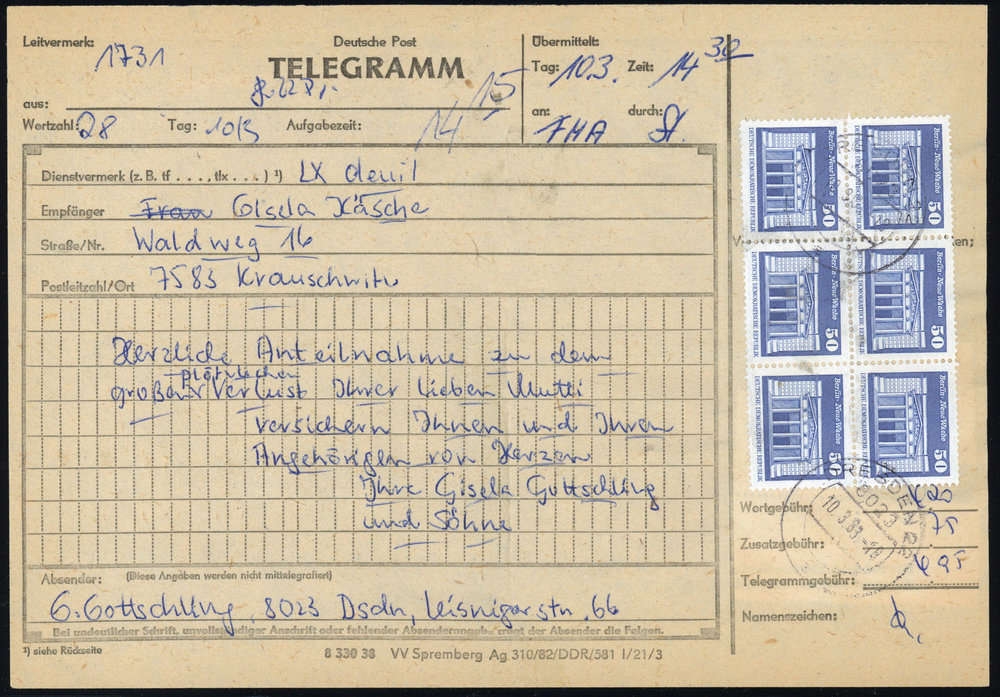 Leitvermerk: 1731
Deutsche Post
TELEGRAMM
aus:
Wertzahl: 28 Tag: 10/3 Aufgabezeit: 14 15
Übermittelt:
Tag: 10.3. Zeit: 14 30
an: durch:
Dienstvermerk (z. B. tf . . . ., tlx . . . . ) ¹) LX deuil
Empfänger Frau Gisela Käsche
Straße/Nr. Waldweg 16
Postleitzahl/Ort 7583 Krauschwitz
Herzliche Anteilnahme zu dem
plötzlichen
großen Verlust Ihrer lieben Mutti
versichern Ihnen und Ihren
Angehörigen von Herzen
Ihre Gisela Gottschling
und Söhne
Absender: (Diese Angaben werden nicht mittelegrafiert)
G. Gottschling, 8023 Dsdn, Leisnigerstr. 66
Bei undeutlicher Schrift, unvollständiger Anschrift oder fehlender Absenderangabe trägt der Absender die Folgen.
¹) siehe Rückseite
8 330 38 VV Spremberg Ag 310/82/DDR/581 I/21/3
Berlin-Neue Wache
50
DEUTSCHE DEMOKRATISCHE REPUBLIK
Berlin-Neue Wache
50
DEUTSCHE DEMOKRATISCHE REPUBLIK
Berlin-Neue Wache
50
DEUTSCHE DEMOKRATISCHE REPUBLIK
Berlin-Neue Wache
50
DEUTSCHE DEMOKRATISCHE REPUBLIK
Berlin-Neue Wache
50
DEUTSCHE DEMOKRATISCHE REPUBLIK
Berlin-Neue Wache
50
DEUTSCHE DEMOKRATISCHE REPUBLIK
DRESDEN
8023
10.3.83-18
Wortgebühr: 4,20
Zusatzgebühr: 75
Telegrammgebühr: 4,95
Namenszeichen: